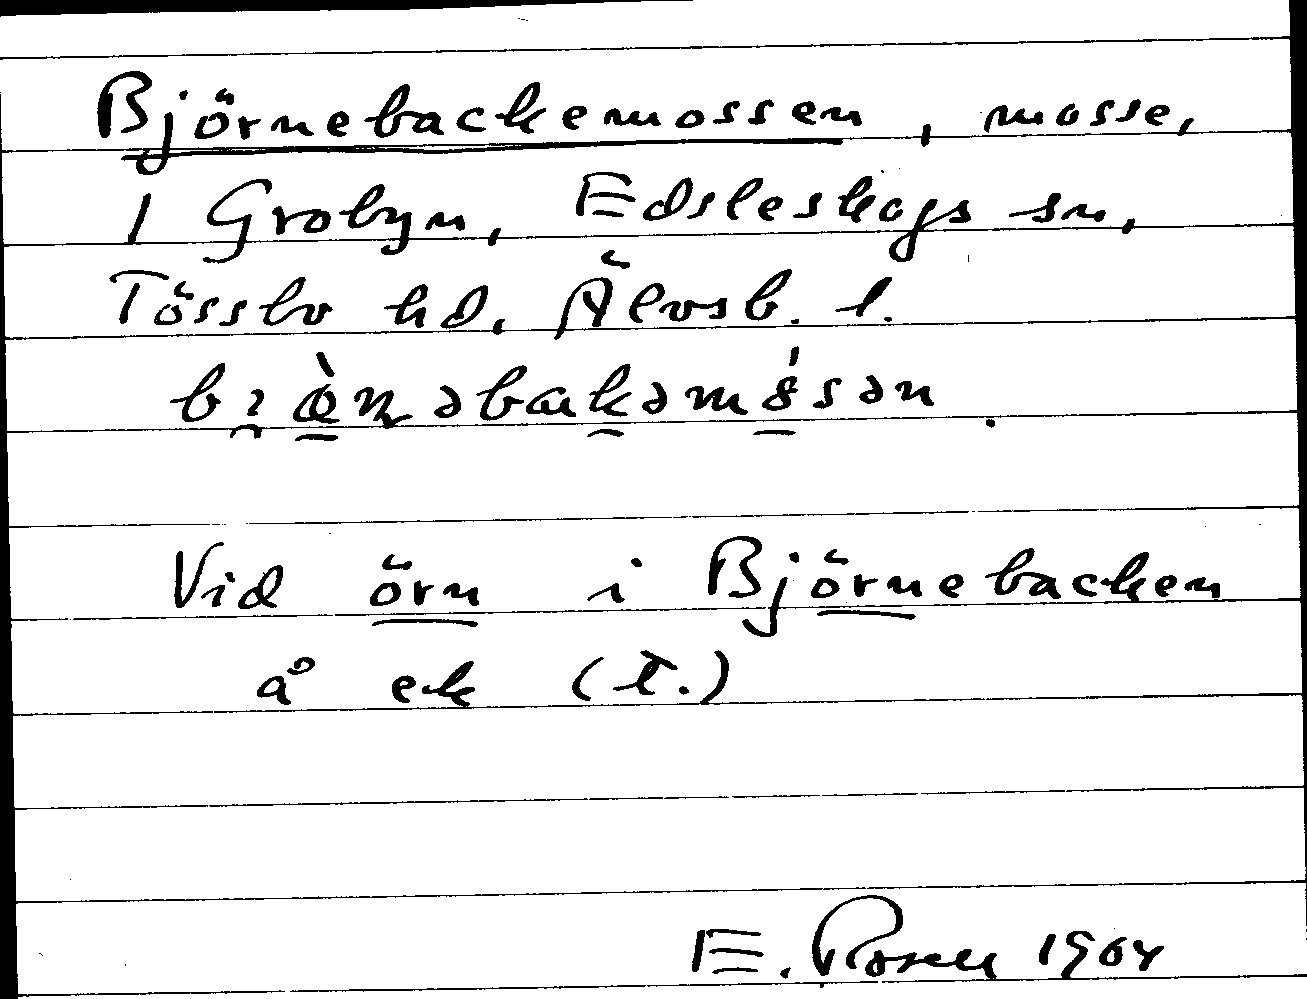 Björnebackemossen, mosse,
1 Grobyn, Edsleskogs sn,
Tössbo hd. Älvsb. l.
Vid örn i Björnebacken
å ek (t.)
E. Rosell 1964